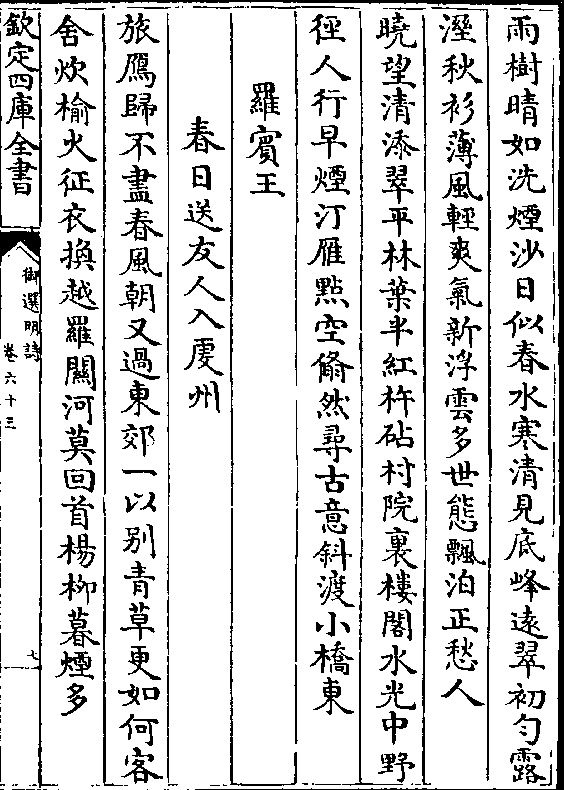 雨樹晴如洗煙沙日似春水寒清見底峰逺翠初勻露
溼秋衫薄風輕爽氣新浮雲多世態飄泊正愁人
曉望清添翠平林葉半紅杵砧村院裏樓閣水光中野
徑人行早煙汀雁㸃空翛然尋古意斜渡小橋東
羅賓王
春日送友人入䖏州
旅鴈歸不盡春風朝又過東郊一以别青草更如何客
舍炊榆火征衣換越羅關河莫回首楊柳暮煙多
欽定四庫全書
御選明詩
卷六十三
七